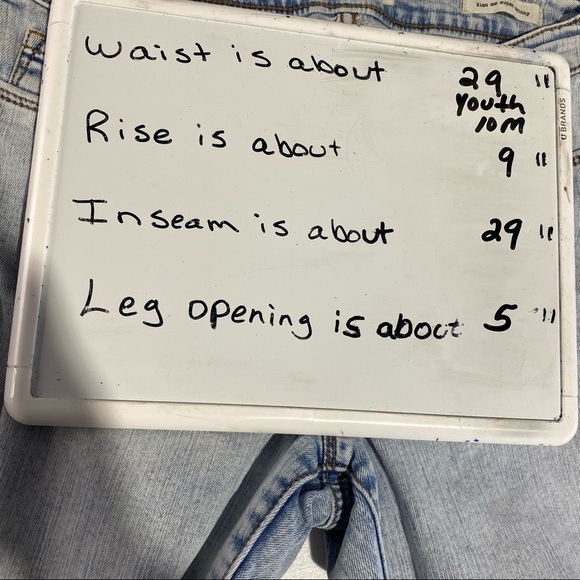 kiss me super skinny
Waist is about 29 "
Youth
10M
Rise is about 9 "
Inseam is about 29 "
Leg opening is about 5 "
U BRANDS